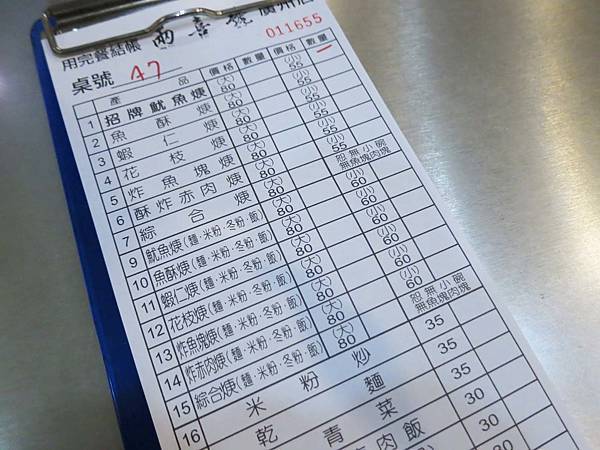 用完餐結帳 兩喜號 廣州店
桌號 A7 011655
產品 價格 數量 價格 數量
1 招牌魷魚焿 (大)80 (小)55 一
2 魚酥焿 (大)80 (小)55
3 蝦仁焿 (大)80 (小)55
4 花枝焿 (大)80 (小)55
5 炸魚塊焿 (大)80 (小)55
6 酥炸赤肉焿 (大)80 (小)55
7 綜合焿 (大)80 恕無小碗 無魚塊肉塊
9 魷魚焿(麵·米粉·冬粉·飯) (大)80 (小)60
10 魚酥焿(麵·米粉·冬粉·飯) (大)80 (小)60
11 蝦仁焿(麵·米粉·冬粉·飯) (大)80 (小)60
12 花枝焿(麵·米粉·冬粉·飯) (大)80 (小)60
13 炸魚塊焿(麵·米粉·冬粉·飯) (大)80 (小)60
14 炸赤肉焿(麵·米粉·冬粉·飯) (大)80 (小)60
15 綜合焿(麵·米粉·冬粉·飯) (大)80 恕無小碗 無魚塊肉塊
16 米粉炒 35
乾麵 35
青菜 30
肉飯 30